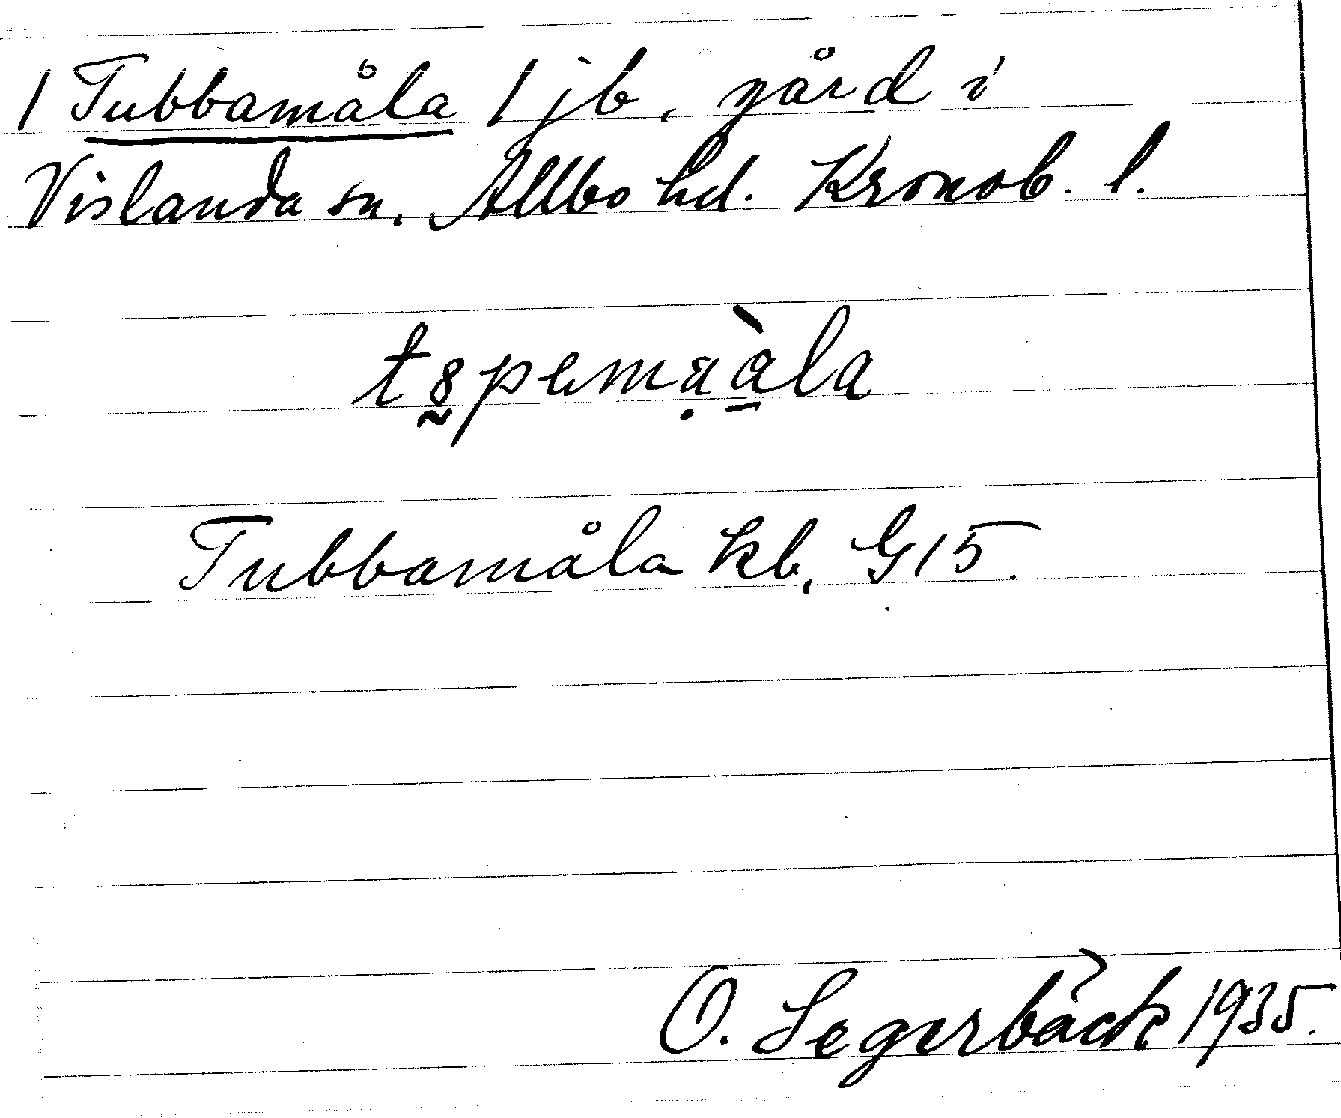 / Tubbamåla / jb, gård i
Vislanda sn. Allbo hd. Kronob. l.
Tubbamåla kb, G15.
O. Segerbäck 1935.